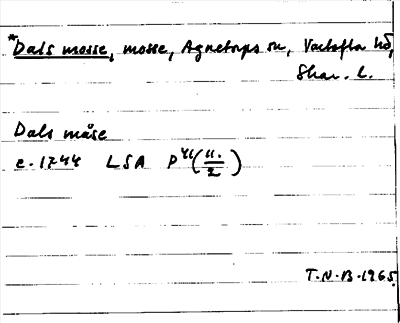 *Dals mosse, mosse, Agnetorps sn, Vartofta hd,
Skar. l.
Dals måse
c. 1744 LSA P 41 (11./2)
T.N.B. 1965.